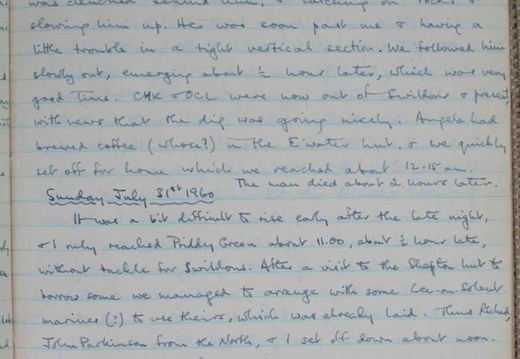 was clenched behind him, & catching on rocks &
slowing him up. He was soon past me & having a
little trouble in a tight vertical section. We followed him
slowly out, emerging about ½ hour later, which was very
good time. CHK & OCL were now out of Swildons & present,
with news that the dig was going nicely. Angela had
brewed coffee (whose?) in the E'water hut, & we quickly
set off for home which we reached about 12.15 am.
The man died about 2 hours later.
Sunday July 31st 1960
It was a bit difficult to rise early after the late night,
& I only reached Priddy Green about 11.00, about ½ hour late,
without tackle for Swildons. After a visit to the Shepton hut to
borrow some we managed to arrange with some Lee-on-Solent
marines (?) to use theirs, which was already laid. Thus Richard,
John Parkinson from the North, & I set off down about noon.